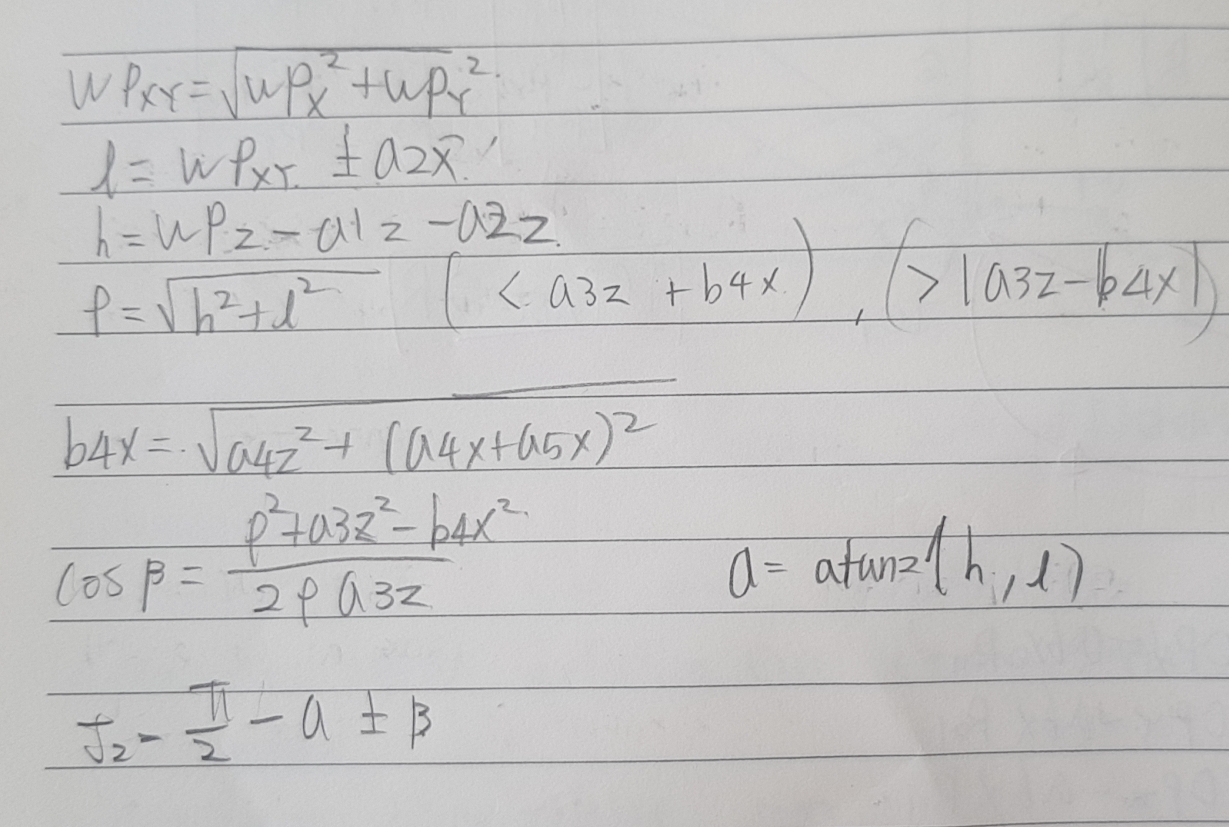 WP_XY = √(WP_X² + WP_Y²)
l = WP_XY ± a2x
h = WP_Z - a1z - a2z
ρ = √(h² + l²) (< a3z + b4x), (> |a3z - b4x|)
b4x = √(a4z² + (a4x + a5x)²)
cos β = (ρ² + a3z² - b4x²) / (2ρ a3z) a = atan2(h, l)
J₂ = π/2 - a ± β